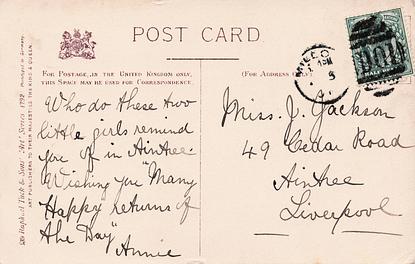 POST CARD
FOR POSTAGE, IN THE UNITED KINGDOM ONLY,
THIS SPACE MAY BE USED FOR CORRESPONDENCE.
(FOR ADDRESS
Who do these two
little girls remind
you of in Aintree.
Wishing you "Many
Happy returns of
the Day"
Annie
Miss. J. Jackson
49 Cedar Road
Aintree
Liverpool
Raphael Tuck & Sons' "Art" Series 1792.
ART PUBLISHERS TO THEIR MAJESTIES THE KING & QUEEN.